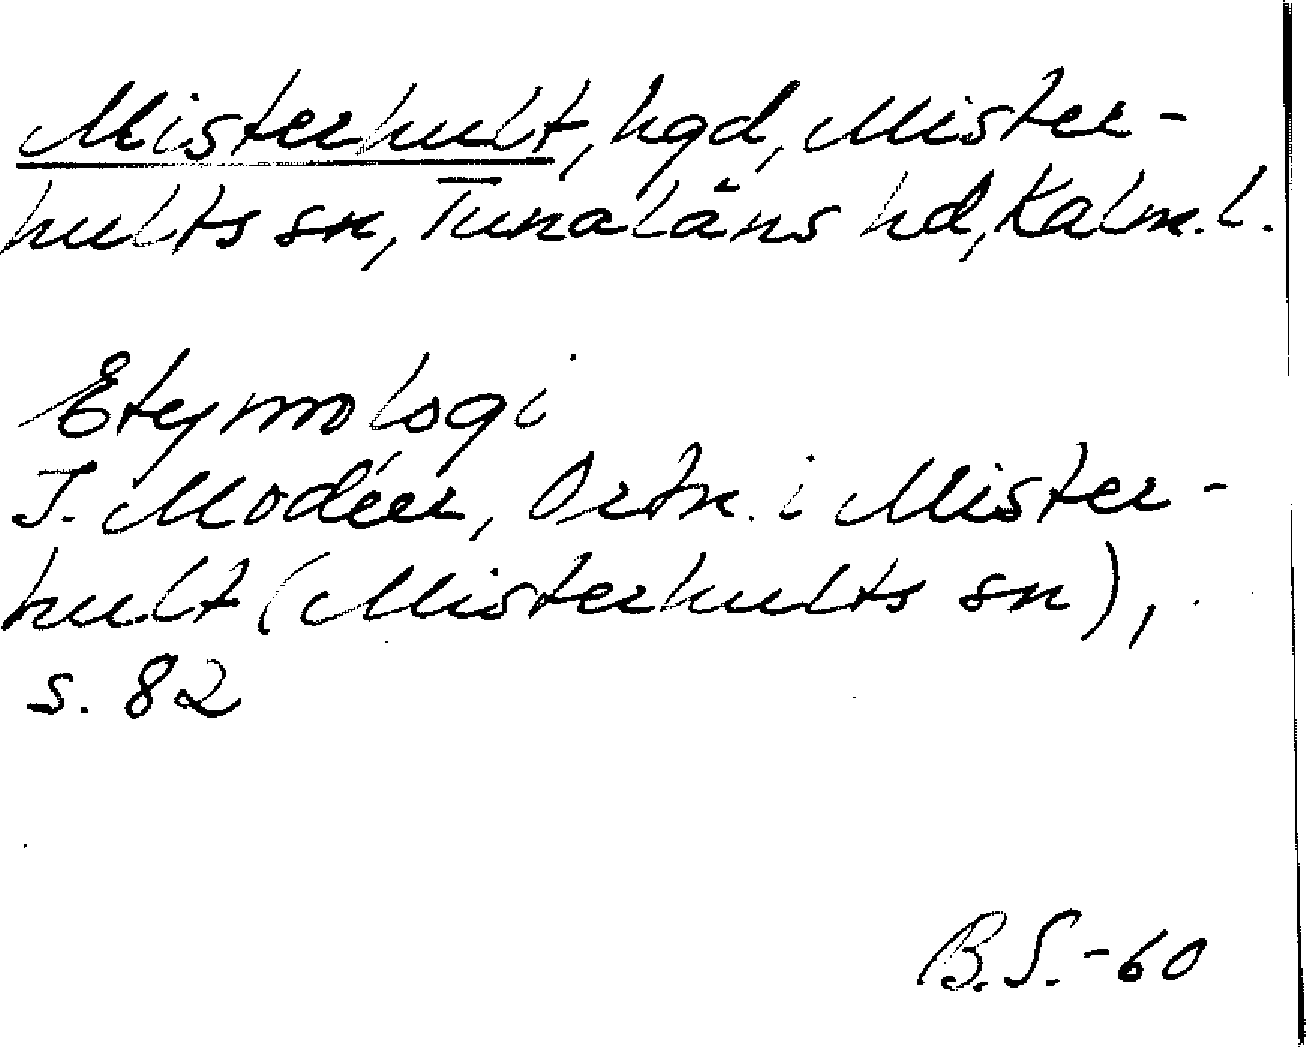 Misterhult, hgd, Mister-
hults sn, Tunaläns hd, Kalm.l.
Etymologi
I. Modéer, Ortn. i Mister-
hult (Misterhults sn),
s. 82
B.S.-60